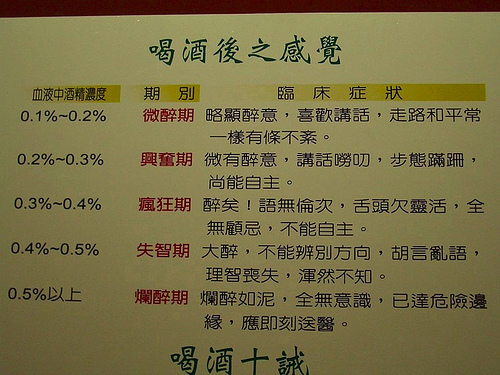 喝酒後之感覺
血液中酒精濃度 期 別 臨 床 症 狀
0.1%~0.2% 微醉期 略顯醉意，喜歡講話，走路和平常
一樣有條不紊。
0.2%~0.3% 興奮期 微有醉意，講話嘮叨，步態蹣跚，
尚能自主。
0.3%~0.4% 瘋狂期 醉矣！語無倫次，舌頭欠靈活，全
無顧忌，不能自主。
0.4%~0.5% 失智期 大醉，不能辨別方向，胡言亂語，
理智喪失，渾然不知。
0.5%以上 爛醉期 爛醉如泥，全無意識，已達危險邊
緣，應即刻送醫。
喝酒十誡